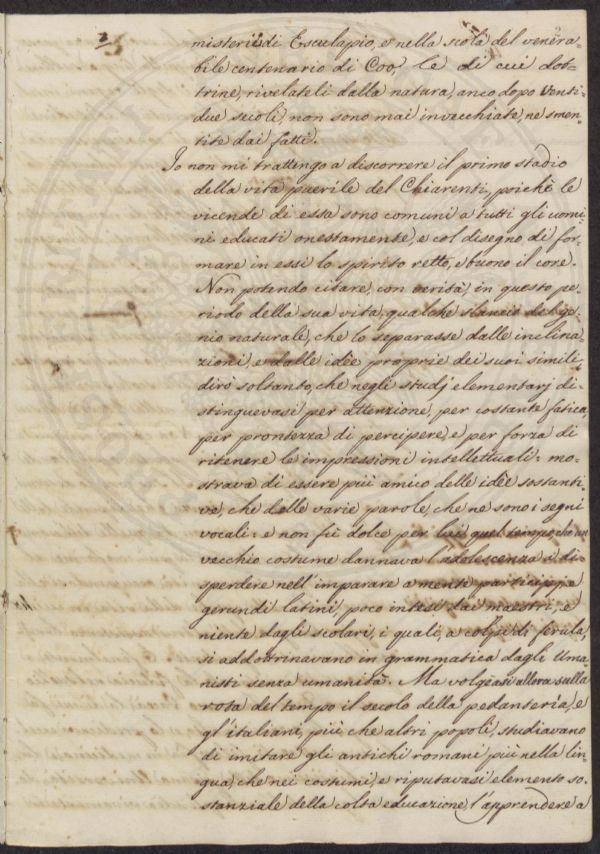 2
misterii di Esculapio, e nella scola del venera-
bile centenario di Coo, le di cui dot-
trine, rivelateli dalla natura, anco dopo venti-
due secoli, non sono mai invecchiate, ne smen-
tite dai fatti.
Io non mi trattengo a discorrere il primo stadio
della vita puerile del Chiarenti, poichè le
vicende di essa sono comuni a tutti gli uomi-
ni educati onestamente, e col disegno di for-
mare in essi lo spirito retto, e buono il core.
Non potendo citare, con verità, in questo pe-
riodo della sua vita, qualche slancio del ge-
nio naturale, che lo separasse dalle inclina-
zioni, e dalle idèe proprie dei suoi simili,
dirò soltanto, che negli studj elementarj di-
stinguevasi per attenzione, per costante fatica,
per prontezza di percipere, e per forza di
ritenere le impressioni intellettuali: mo-
strava di essere più amico delle idèe sostanti-
ve, che delle varie parole, che ne sono i segni
vocali: e non fù dolce per lui quel tempo, che un
vecchio costume dannava l'adolescenza a di-
sperdere nell'imparare a mente participj, e
gerundi latini, poco intesi dai maestri, e
niente dagli scolari, i quali, a colpi di ferula,
si addottrinavano in grammatica dagli Uma-
nisti senza umanità. Ma volgeasi allora sulla
rota del tempo il secolo della pedanterìa, e
gl'italiani, più che altri popoli, studiavano
di imitare gli antichi romani più nella lin-
gua, che nei costumi, e riputavasi elemento so-
stanziale della colta educazione, l'apprendere a